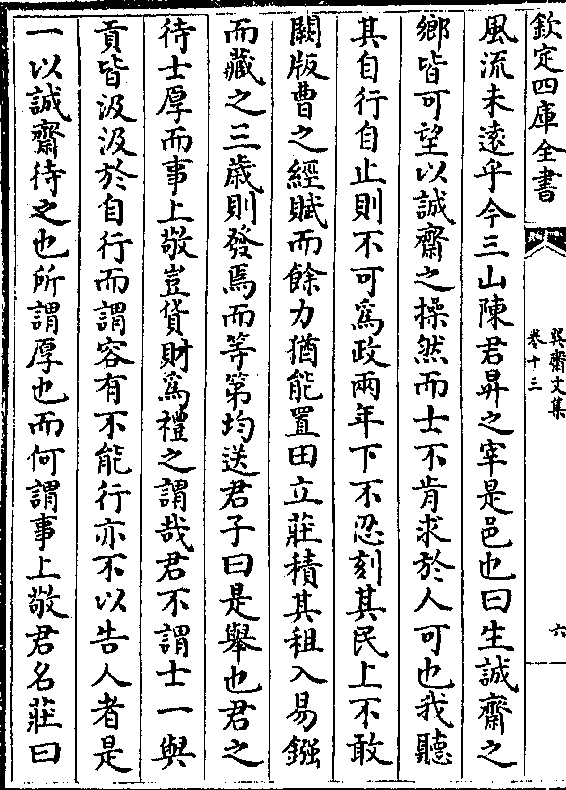 欽定四庫全書
巽齋文集
卷十三
六
風流未逺乎今三山陳君昇之宰是邑也曰生誠齋之
鄉皆可望以誠齋之操然而士不肯求於人可也我聽
其自行自止則不可爲政兩年下不忍刻其民上不敢
闕版曹之經賦而餘力猶能置田立莊積其租入易鏹
而藏之三歳則發焉而等第均送君子曰是舉也君之
待士厚而事上敬豈貨財爲禮之謂哉君不謂士一與
貢皆汲汲於自行而謂容有不能行亦不以告人者是
一以誠齋待之也所謂厚也而何謂事上敬君名莊曰